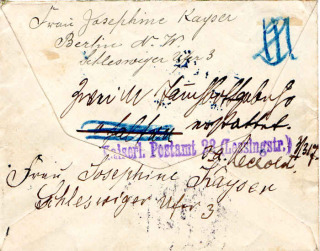 Frau Josephine Kayser
Berlin N. W
Schleswiger Ufer 3
Zwei M
erstattet.
Kaiserl. Postamt 23 (Lessingstr.)
Frau Josephine
Kayser
Schleswiger Ufer 3